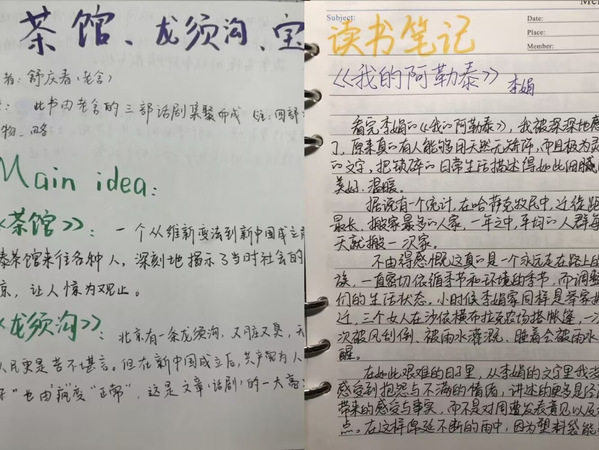 茶馆、龙须沟、宝
者: 舒庆春(老舍)
此书由老舍的三部话剧集聚而成
物、略
Main idea:
《茶馆》: 一个从维新变法到新中国成立
泰茶馆来往各种人, 深刻地揭示了当时社会的
京, 让人惊为观止。
《龙须沟》: 北京有一条龙须沟, 又脏又臭, 天
人民更是苦不堪言。但在新中国成立后, 共产党为人
"也由"病变"正常", 这是文章(话剧)的一大高
Subject:
Date:
Place:
Member:
读书笔记
《我的阿勒泰》 李娟
看完李娟的《我的阿勒泰》, 我被深深地
了, 原来真的有人能够用天然无矫饰, 而且极为
的文字, 把琐碎的日常生活描述得如此细腻
美好、温暖。
据说有个统计, 在哈萨克牧民中, 迁徙距
最长, 搬家最多的人家, 一年之中, 平均的人群每
天就搬一次家。
不由得感慨这真的是一个永远走在路上的
族, 一直密切依循季节和环境的季节, 而调整
们的生活状态。小时候李娟家同样是举家搬
迁, 三个女人在沙依横布拉克农场搭帐篷, 一
次被风刮倒、被雨水灌溉、睡着会被雨水
醒。
在如此艰难的日子里, 从李娟的文字里我没
感受到抱怨与不满的情绪, 讲述的更多是经历
带来的感受与事实, 而不是对周遭发表意见以及
点。在这样绵延不断的雨中, 因为塑料袋能